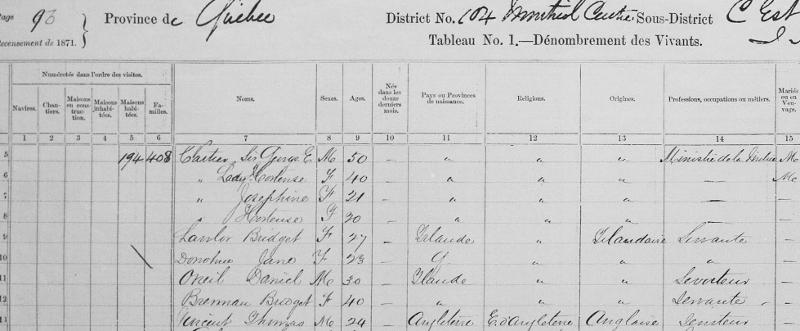 Page 93 Province de Québec District No. 104 Montréal Centre Sous-District C Est
Recensement de 1871. Tableau No. 1.—Dénombrement des Vivants.
Numérotés dans l'ordre des visites.
Navires. Chantiers. Maisons en construction. Maisons inhabitées. Maisons habitées. Familles. Noms. Sexes. Ages. Nés dans les douze derniers mois. Pays ou Provinces de naissance. Religions. Origines. Professions, occupations ou métiers. Mariés ou en Veuvage.
1 2 3 4 5 6 7 8 9 10 11 12 13 14 15
5 194 408 Cartier Sir George E. M 50 — " " " Ministre de la Milice M
6 " Lady Hortense F 40 — " " " — M
7 " Josephine F 21 — " " " — —
8 " Hortense F 20 — " " " — —
9 Lawlor Bridget F 27 — Irlande " Irlandaise Servante —
10 Donohue Jane F 23 — " " " —
11 Oneil Daniel M 30 — Irlande " " Serviteur —
12 Brennan Bridget F 40 — " " " Servante —
Vincent Thomas M 24 — Angleterre E. d'Angleterre Anglaise Serviteur —